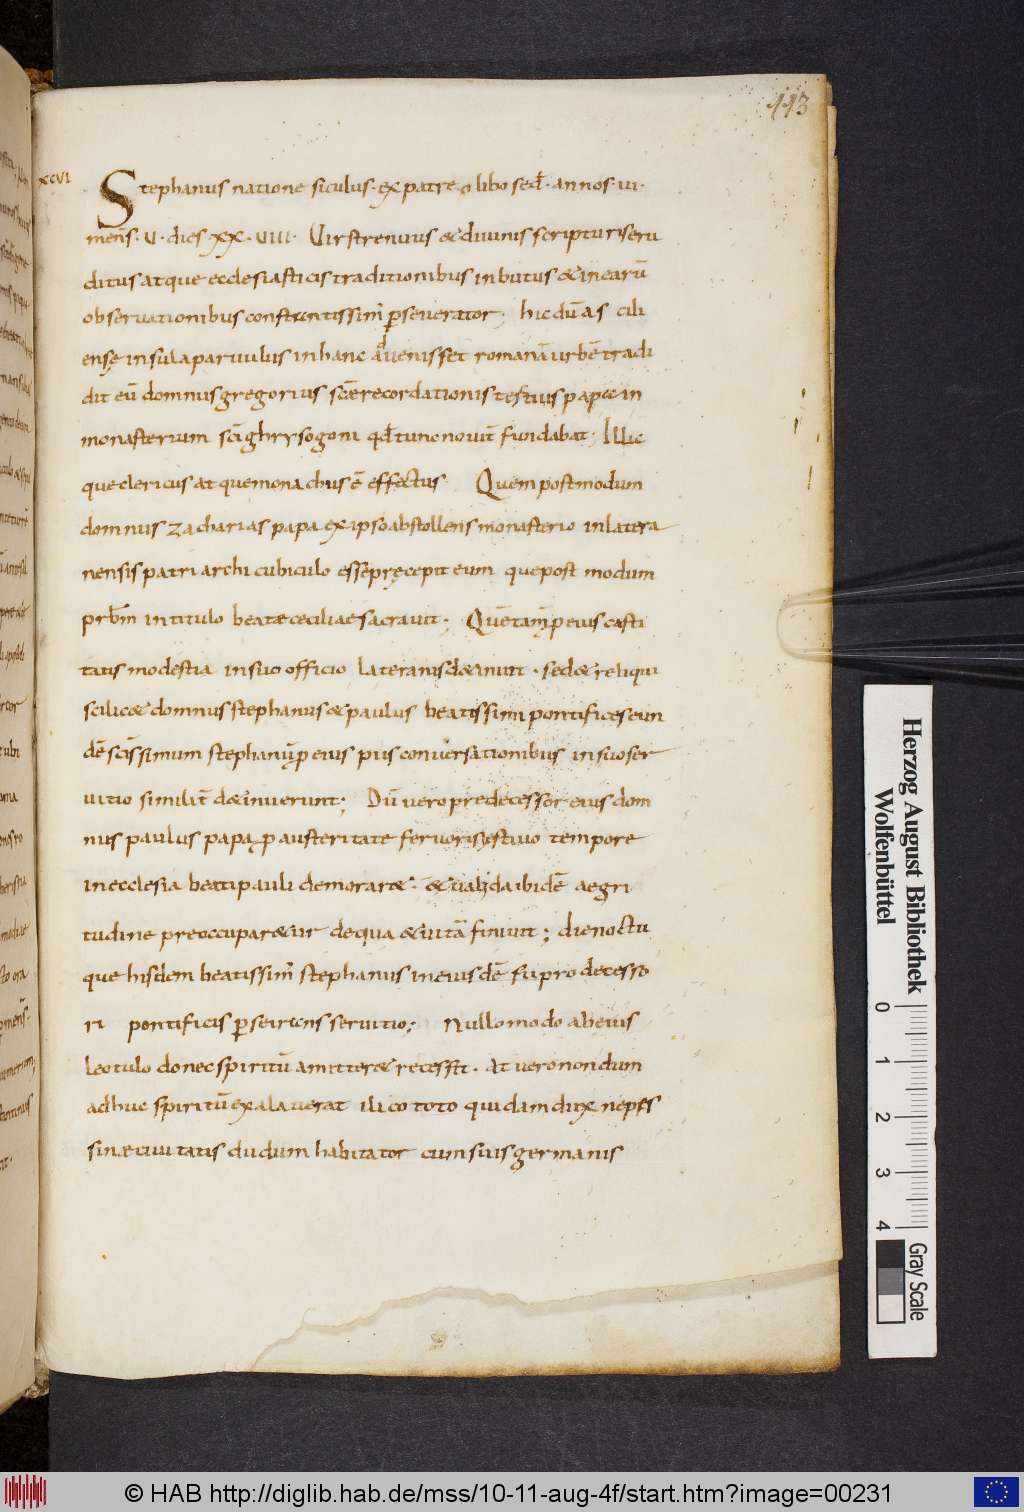 113
XCVI
Stephanus natione siculus· ex patre olibo sed̄· annos· iii·
mens̄· U· dies XX· UIII· Uir strenuus & diuinis scripturis eru
ditus atque ecclesiasticis traditionibus inbutus & in earū
obseruationibus constantissim̄ p̱seuerator; hic dū as cili
ense insula paruulus in hanc aduenisset romanā urbē tradi
dit eū domnus gregorius scē recordationis tertius papa in
monasterium sc̄i ghrysogoni qd̄ tunc nouit̄ fundabat; Illic
que clericus atque monachus ē effectus Quem postmodum
domnus zacharias papa ex ipso abstollens monasterio in latera
nensis patriarchi cubiculo esse pręcepit eum que post modum
prbm̄ in titulo beatae ceciliae sacrauit; Quē tam̄ p̱ eius casti
tatis modestia in suo officio lateranis d&inuit · sed & reliqui
scilic& domnus stephanus & paulus beatissimi pontifices eun
dē sc̄issimum stephanum p̱ eius piis conuersationibus in suo ser
uitio similit̄ d&inuerunt; Dū uero predecessor eius dom
nus paulus papa p̱ austeritate feruoris ęstiuo tempore
in ecclesia beati pauli demorar&· & ualida ibidē aegri
tudine preoccupar&ur de qua & uitā finiuit; die noctu
que hisdem beatissim̄ stephanus in eiusdē sui prodecesso
ri pontificis p̱seuerans seruitio; Nullo modo ab eius
lectulo donec spiritū amitter& recessit· At uero nondum
adhuc spiritū exalauerat ilico toto quidam dux nepes
sinae ciuitatis dudum habitator cum suis germanis
Herzog August Bibliothek
Wolfenbüttel
0 1 2 3 4
Gray Scale
© HAB http://diglib.hab.de/mss/10-11-aug-4f/start.htm?image=00231